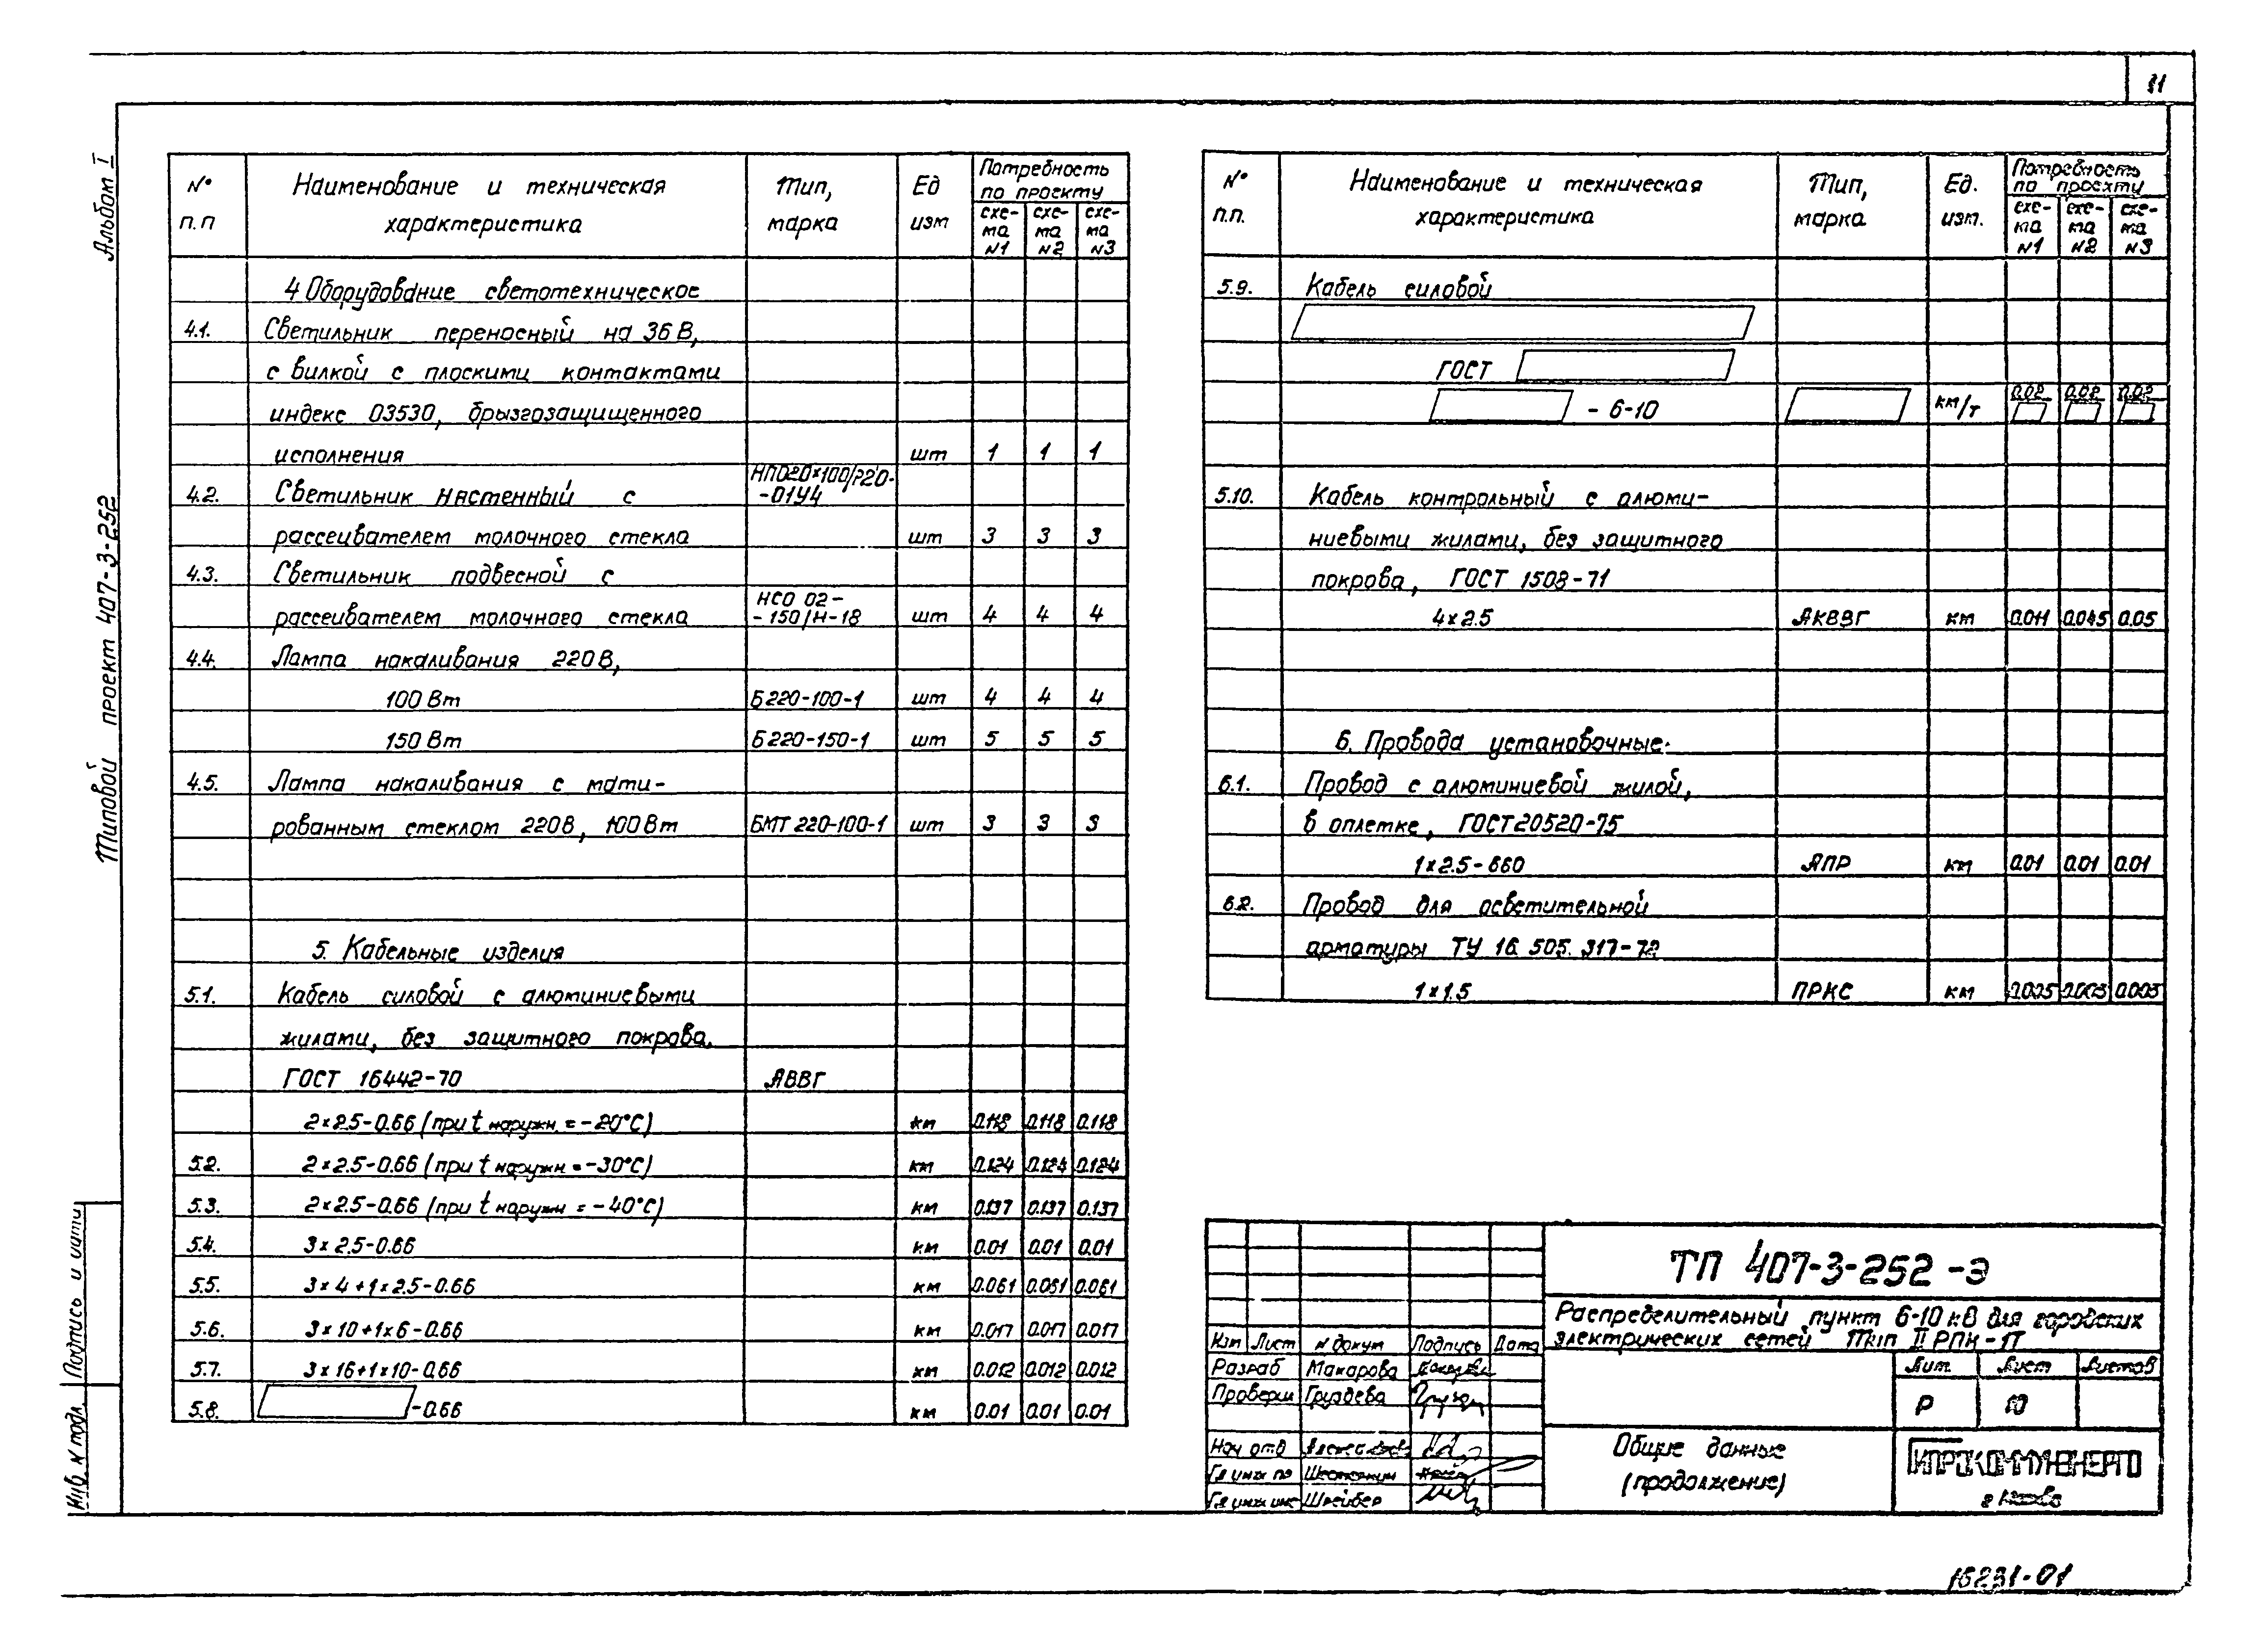 11
Альбом I
Типовой проект 407-3-252
Инв. № подл. Подпись и дата
№ п.п Наименование и техническая характеристика Тип, марка Ед изм Потребность по проекту
схема №1 схема №2 схема №3
4 Оборудование светотехническое
4.1. Светильник переносный на 36 В,
с вилкой с плоскими контактами
индекс 03530, брызгозащищенного
исполнения шт 1 1 1
4.2. Светильник настенный с НПО20×100/Р20-
-01У4
рассеивателем молочного стекла шт 3 3 3
4.3. Светильник подвесной с
рассеивателем молочного стекла НСО 02-
-150/Н-18 шт 4 4 4
4.4. Лампа накаливания 220 В,
100 Вт Б220-100-1 шт 4 4 4
150 Вт Б220-150-1 шт 5 5 5
4.5. Лампа накаливания с мати-
рованным стеклом 220В, 100Вт БМТ 220-100-1 шт 3 3 3
5. Кабельные изделия
5.1. Кабель силовой с алюминиевыми
жилами, без защитного покрова.
ГОСТ 16442-70 АВВГ
2×2.5-0.66 (при t наружн. = -20°С) км 0.118 0.118 0.118
5.2. 2×2.5-0.66 (при t наружн = -30°С) км 0.124 0.124 0.124
5.3. 2×2.5-0.66 (при t наружн = -40°С) км 0.137 0.137 0.137
5.4. 3×2.5-0.66 км 0.01 0.01 0.01
5.5. 3×4+1×2.5-0.66 км 0.061 0.061 0.061
5.6. 3×10+1×6-0.66 км 0.017 0.017 0.017
5.7. 3×16+1×10-0.66 км 0.012 0.012 0.012
5.8. -0.66 км 0.01 0.01 0.01
№ п.п. Наименование и техническая характеристика Тип, марка Ед. изм. Потребность по проекту
схема №1 схема №2 схема №3
5.9. Кабель силовой
ГОСТ
- 6-10 км/т 0.02 0.02 0.02
5.10. Кабель контрольный с алюми-
ниевыми жилами, без защитного
покрова, ГОСТ 1508-71
4×2.5 АКВВГ км 0.011 0.045 0.05
6. Провода установочные.
6.1. Провод с алюминиевой жилой,
в оплетке, ГОСТ 20520-75
1×2.5-660 АПР км 0.01 0.01 0.01
6.2. Провод для осветительной
арматуры ТУ 16. 505. 317-72
1×1.5 ПРКС км 0.005 0.005 0.005
ТП 407-3-252 -Э
Распределительный пункт 6-10 кВ для городских
электрических сетей Тип II РПК-1Т
Изм Лист № докум Подпись Дата
Разраб Макарова
Проверил Груздева
Нач отд
Гл инж пр
Гл инж инс Шрейбер
Лит Лист Листов
Р 10
Общие данные
(продолжение)
ГИПРОКОММУНЭНЕРГО
16231-01